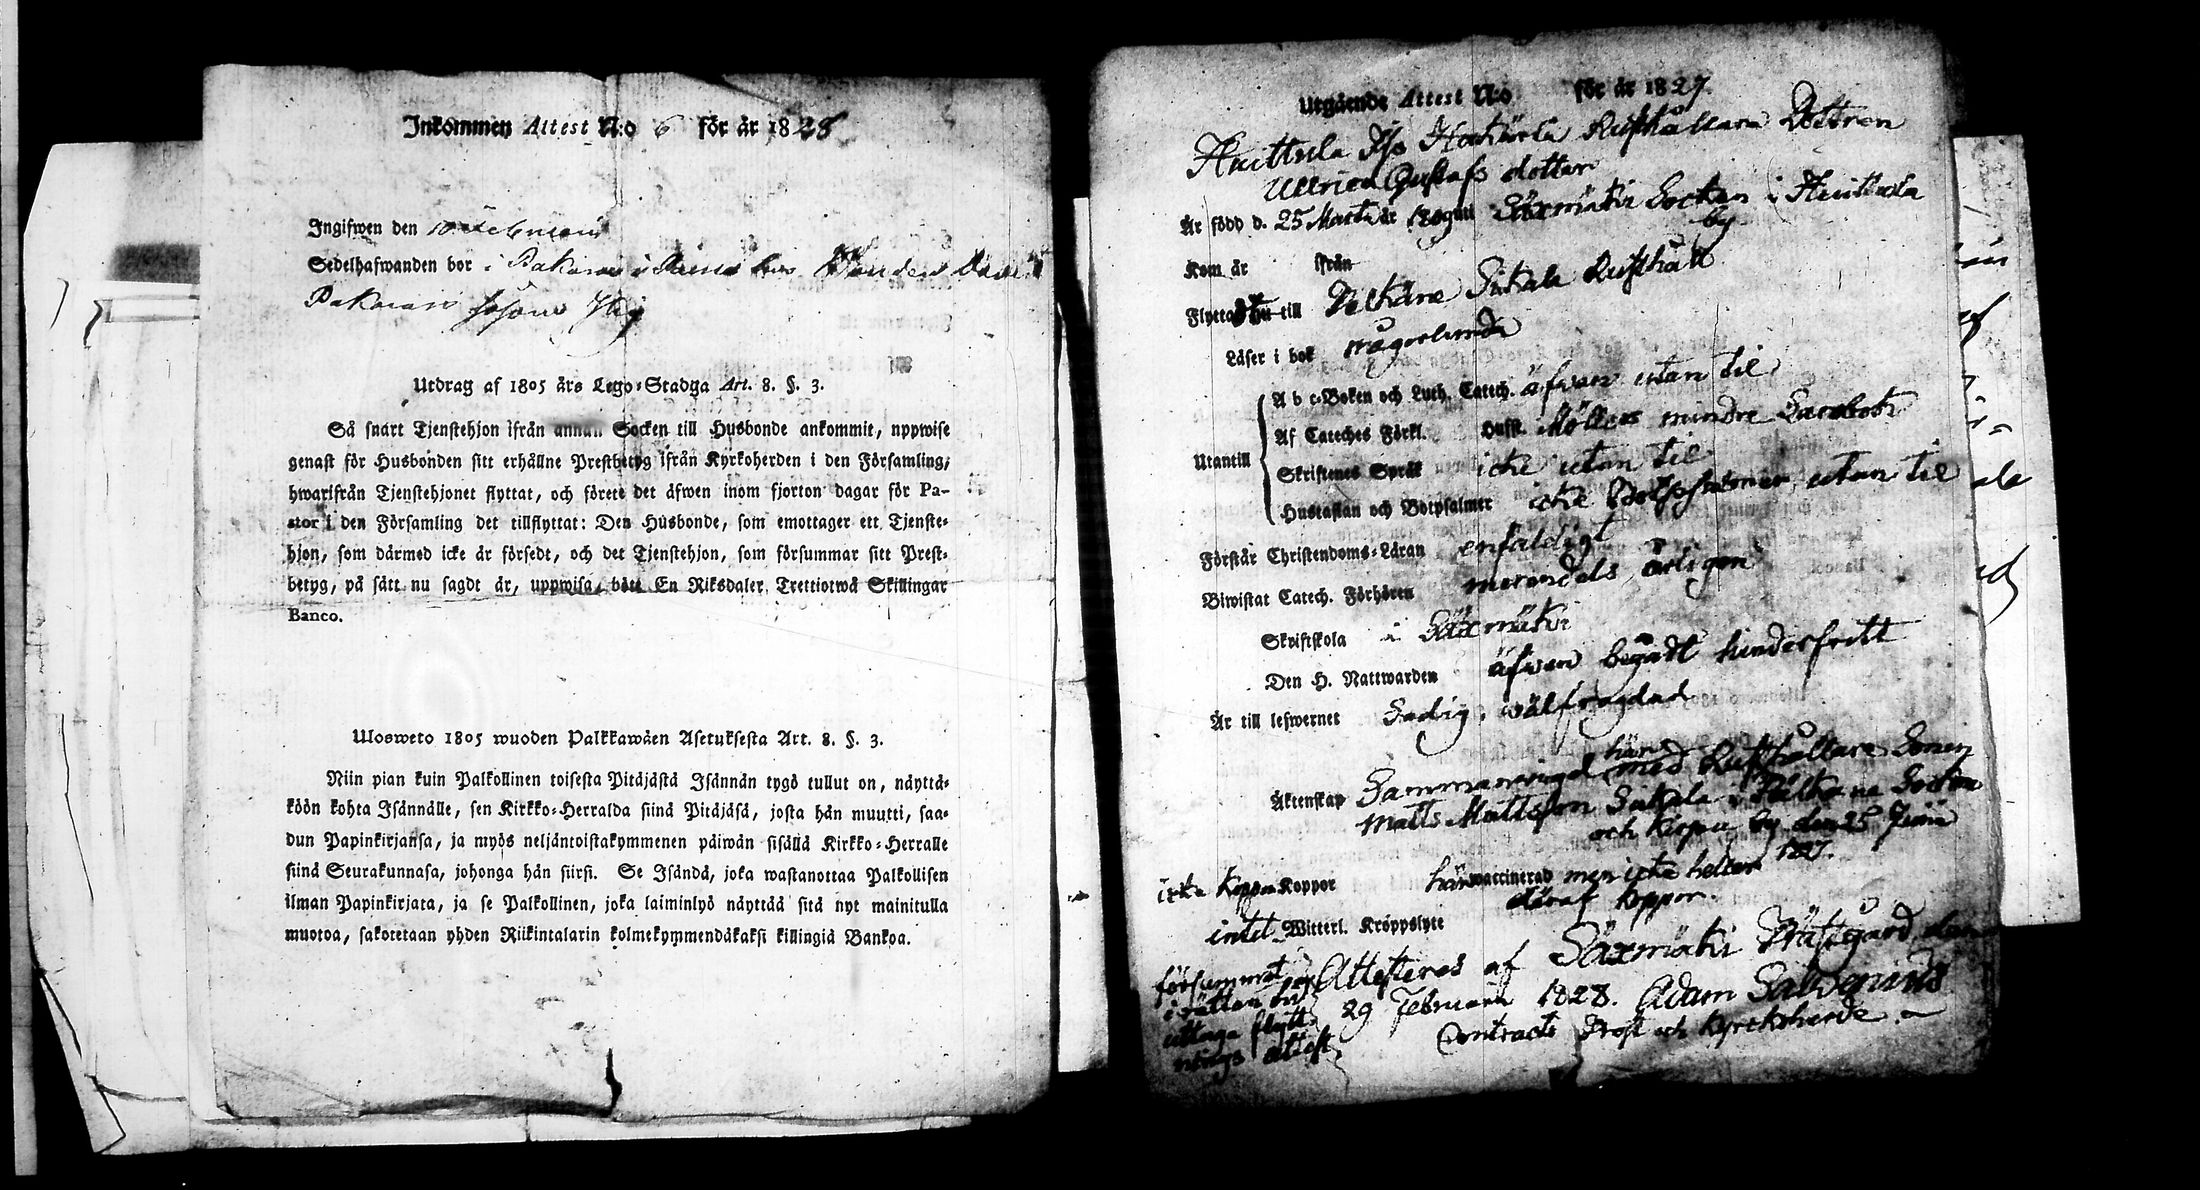 Inkommen Attest N:o 6 för år 1828
Ingifwen den 10 Februari
Sedelhafwanden bor i
Utdrag af 1805 års Lego-Stadga Art. 8. §. 3.
Så snart Tjenstehjon ifrån annan Socken till Husbonde ankommit, uppwise
genast för Husbonden sitt erhållne Prestbetyg ifrån Kyrkoherden i den Församling,
hwarifrån Tjenstehjonet flyttat, och förete det äfwen inom fjorton dagar för Pa-
stor i den Församling det tillflyttat: Den Husbonde, som emottager ett Tjenste-
hjon, som därmed icke är försedt, och det Tjenstehjon, som försummar sitt Prest-
betyg, på sätt nu sagdt är, uppwisa, böte En Riksdaler Trettiotwå Skillingar
Banco.
Ulosweto 1805 wuoden Palkkawäen Asetuksesta Art. 8. §. 3.
Niin pian kuin Palkollinen toisesta Pitäjästä Isännän tygö tullut on, näyttä-
köön kohta Isännälle, sen Kirkko-Herralda siinä Pitäjäsä, josta hän muutti, saa-
dun Papinkirjansa, ja myös neljäntoistakymmenen päiwän sisällä Kirkko-Herralle
siinä Seurakunnasa, johonga hän siirsi. Se Isändä, joka wastanottaa Palkollisen
ilman Papinkirjata, ja se Palkollinen, joka laiminlyö näyttää sitä nyt mainitulla
muotoa, sakotetaan yhden Riikintalarin kolmekymmendäkaksi killingiä Bankoa.
Utgående Attest N:o för år 1827
Huittula Rusthållare Dottren
Ullrica Gustafs dotter
Är född d. 25 Martii år uti Sääxmäki Socken i Huittula
by
Kom år ifrån
Flyttade till Pelkäne Sukala Rusthåll
Läser i bok någorlunda
Utantill
A b c-Boken och Luth. Catech. äfwen utan til
Af Cateches Förkl. mindre
Skriftenes Språk icke utan til
Hustaflan och Botpsalmer icke Botpsalmer utan til
Förstår Christendoms-Läran enfaldigt
Biwistat Catech. Förhören merendels årligen
Skriftskola i Sääxmäki
Den H. Nattwarden äfwen begådt hinderfritt
Är till lefwernet Sedig, wälfrägdad
här
Äktenskap Sammanwigd med Rusthållare Sonen
Matts Mattsson Sukala i Pälkäne Socken
och by den 25 Junii
1827.
icke Koppor Koppor här waccinerad men icke heller
däraf koppor
intet Witterl. Kroppslyte
försummat
i rättan tid
uttaga flytt-
nings attest.
Attesteras af Sääxmäki Prästgård den
29 Februarii 1828. Adam Salvenius
Contracts Prost och Kyrckoherde.